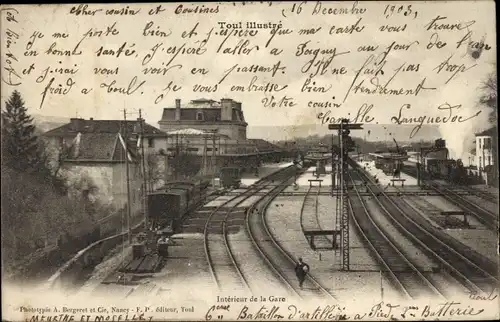 16 Décembre 1903,
Cher cousin et Cousines
Toul illustré
je me porte bien et j'espère que ma carte vous trouve
en bonne santé. J'espère aller a Pagny au jour de l'an
et j'irai vous voir en passant. Il ne fait pas trop
froid a Toul. Je vous embrasse bien tendrement
Votre cousin
Camille Languedoc
Intérieur de la Gare
Phototypie A. Bergeret et Cie, Nancy - F. P., éditeur, Toul
MEURTHE ET MOSELLE
6ème Bataillon d'artillerie a Pied, 2e Batterie
Toul